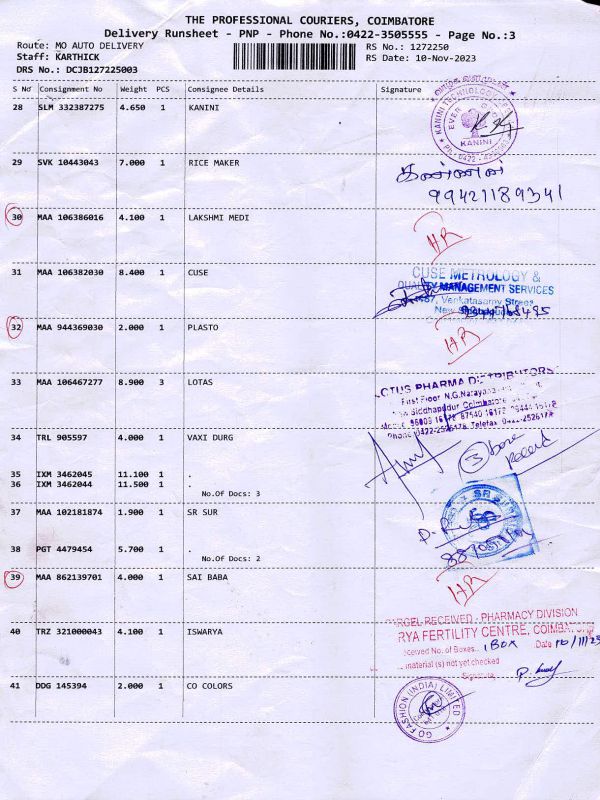 THE PROFESSIONAL COURIERS, COIMBATORE
Delivery Runsheet - PNP - Phone No.:0422-3505555 - Page No.:3
Route: MO AUTO DELIVERY
RS No.: 1272250
Staff: KARTHICK
RS Date: 10-Nov-2023
DRS No.: DCJB127225003
S No Consignment No Weight PCS Consignee Details Signature
28 SLM 332387275 4.650 1 KANINI
KANINI TECHNOLOGY
KANINI
29 SVK 10443043 7.000 1 RICE MAKER
கண்ணன்
99421189341
30 MAA 106386016 4.100 1 LAKSHMI MEDI
HR
31 MAA 106382030 8.400 1 CUSE
CUSE METROLOGY &
QUALITY MANAGEMENT SERVICES
Venkatasamy Street
New
32 MAA 944369030 2.000 1 PLASTO
HR
33 MAA 106467277 8.900 3 LOTAS
LOTUS PHARMA DISTRIBUTORS
First Floor N.G.Narayana
Siddhapudur Coimbatore
Phone 0422-2526178 Telefax 0422-252617
34 TRL 905597 4.000 1 VAXI DURG
3 box
35 IXM 3462045 11.100 1 .
36 IXM 3462044 11.500 1 .
No.Of Docs: 3
37 MAA 102181874 1.900 1 SR SUR
SR
38 PGT 4479454 5.700 1 .
No.Of Docs: 2
39 MAA 862139701 4.000 1 SAI BABA
HR
PARCEL RECEIVED - PHARMACY DIVISION
40 TRZ 321000043 4.100 1 ISWARYA
RYA FERTILITY CENTRE, COIMBATORE
eceived No. of Boxes.. 1 BOX Date 10/11/23
material (s) not yet checked
Signature
41 DDG 145394 2.000 1 CO COLORS
GO FASHION (INDIA) LIMITED